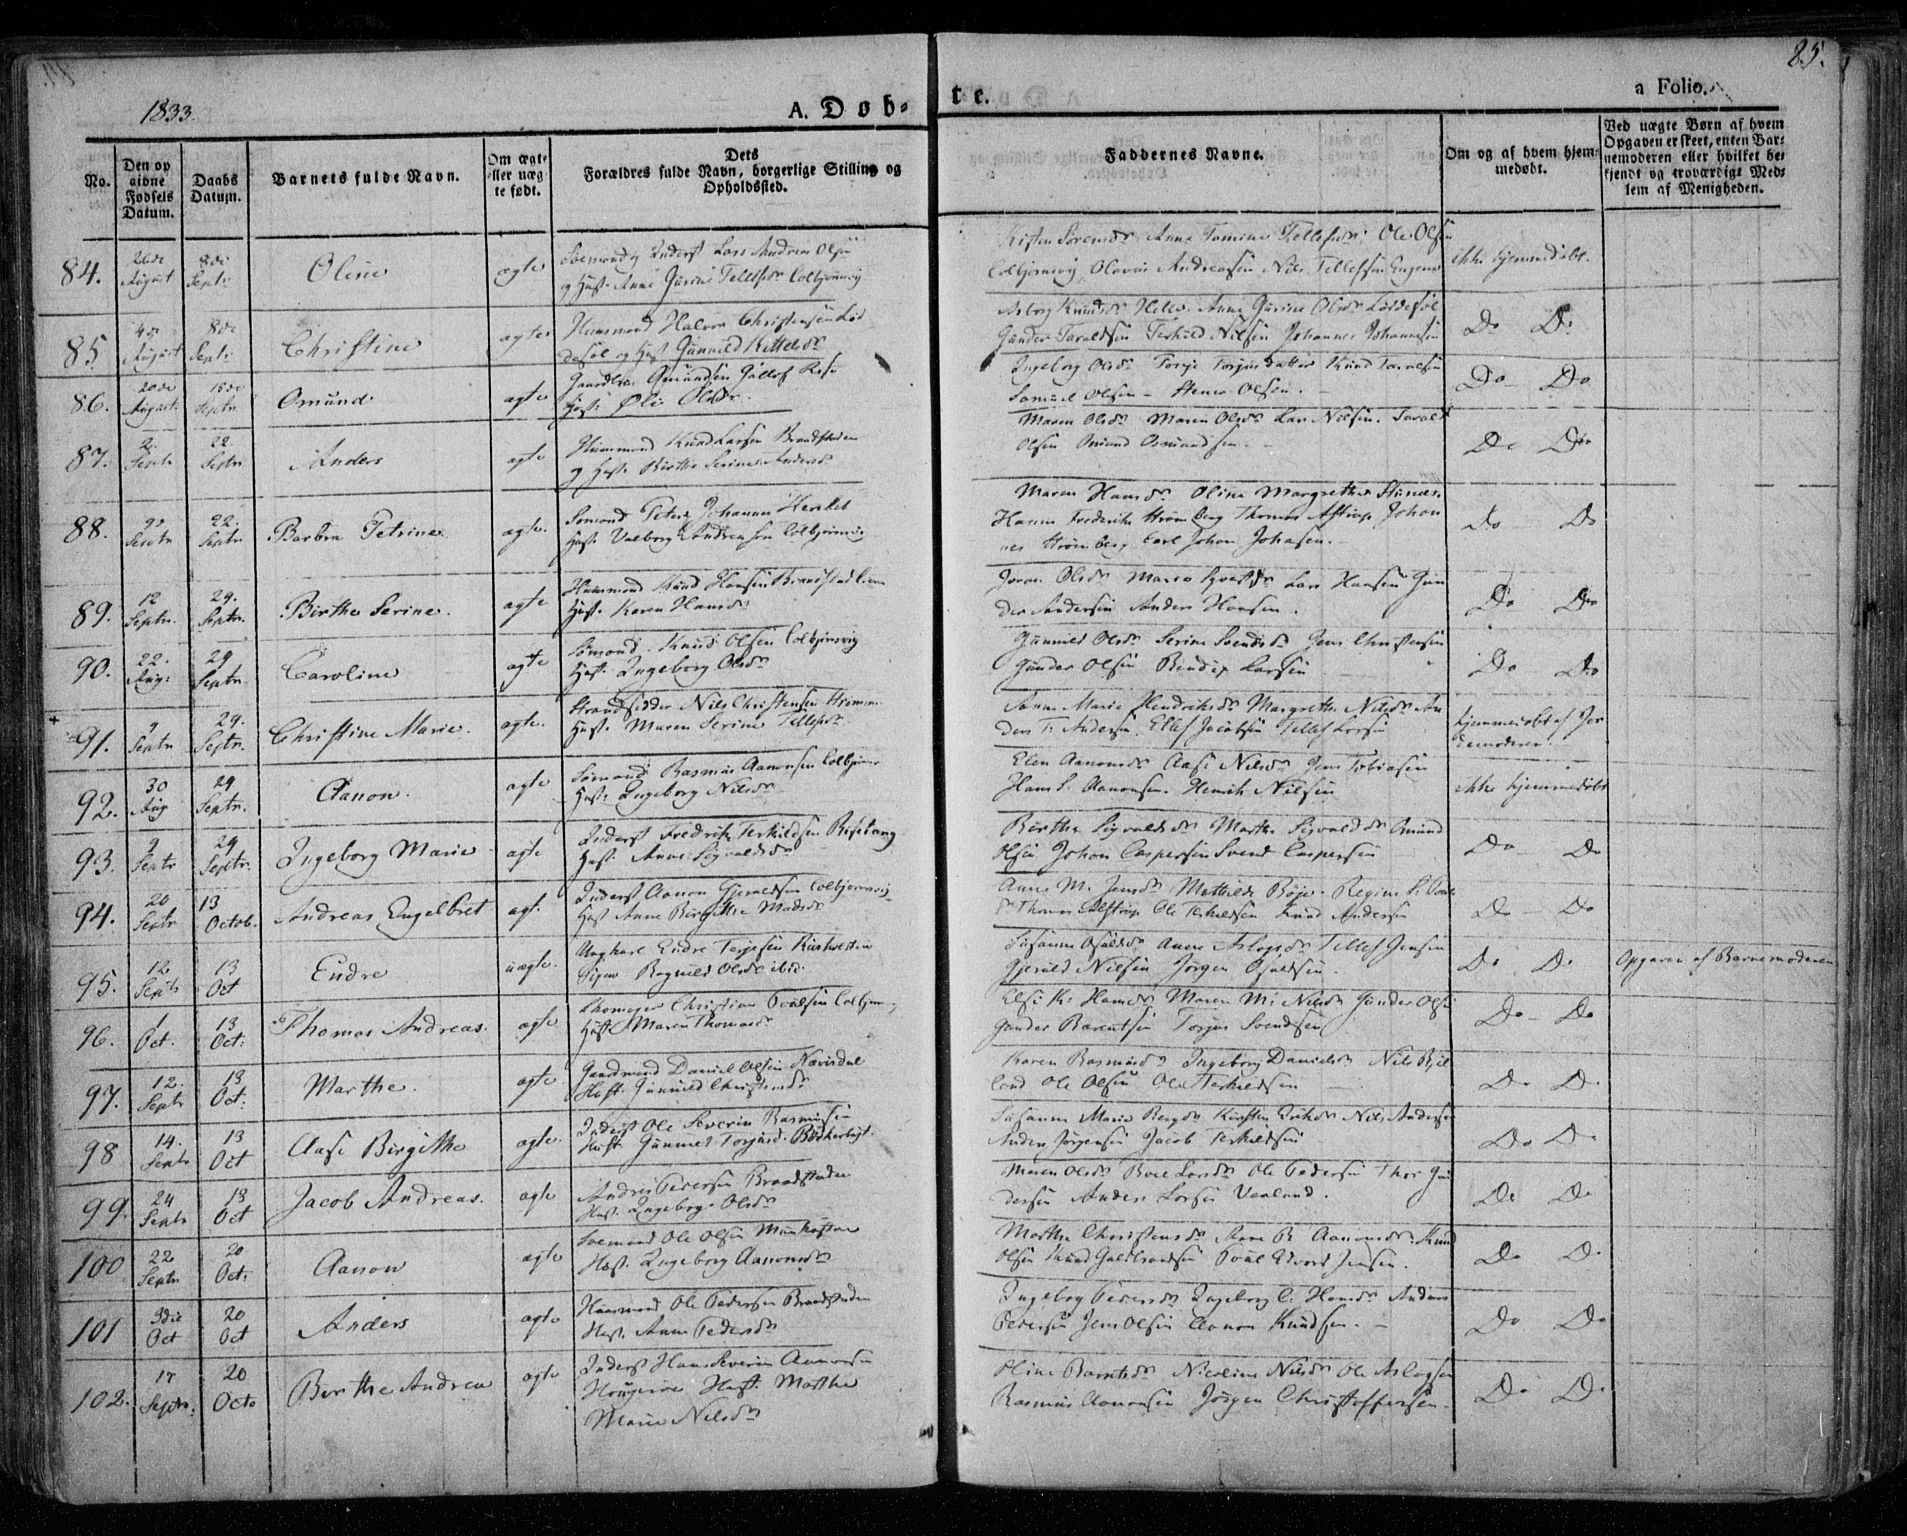 1833.
A. Døb-
te.
a Folio.
85.
No.
Den op
givne
Fødsels
Datum.
Daabs
Datum.
Barnets fulde Navn.
Om ægte
eller uæg
te født.
Dets
Forældres fulde Navn, borgerlige Stilling og
Opholdssted.
Faddernes Navne.
Om og af hvem hjem-
medøbt.
Ved uægte Børn af hvem
Opgaven er skeet, enten Bar-
nemoderen eller hvilket be-
kjendt og troværdigt Med-
lem af Menigheden.
84. 26de August 8de Septr Oline ægte
Inderst Lars Andreas Olsen
og Hust. Anne Gurine Tellefsdr Colbjørnsvig
Ole Olsen
Colbjørnsvig, Olavus Andreassen Nils Tellefsen
ikke hjemmedøbt.
85 4de August 8de Septr Christine ægte
Huusmand Halvor Christensen Lød
desøl og Hust Gunnild Kittelsdr
Aslaug Knudsdr Helle, Anne Gurine Olsdr Løddesøl
Gunder Taraldsen Terkild Nilsen Johannes Johannesen
Do Do
86. 20de August. 15de Septr Omund ægte
Omundsen
Hust. Øli Olsdr.
Ingeborg Olsdr Torje Torjusdatter Knud Taralsen
Samuel Olsen Olsen.
Do Do
87. 2. Septr 22 Septr Anders ægte
Huusmand Knud Larsen Brandstaden
og Hust. Birthe Serine Andersdr
Maren Olsdr Maren Olsdr Lars Nilsen. Tarald
Olsen Omund Osmundsen.
Do Do
88. Septr 22. Septr Barbra Petrine ægte.
Sømand Peter Johannes
Hust. Valborg Andreasen Colbjørnsvig
Maren Hansdr Oline Margrethe
Hanne Frederike Strømberg Thomas Alstrup Johan
nes Strømberg Carl Johan Johasen.
Do Do
89. 12 Septr. 29. Septr. Birthe Serine. ægte
Huusmand Knud Hansen
Hust. Karen Hansdr
Olsdr Maren Lars Hansen Gun
der Andersen Anders Hansen.
Do Do
90. 22. Aug: 29 Septr Caroline ægte
Sømand. Knud Olsen Colbjørnsvig
Hust. Ingeborg Olsdr
Gunnild Olsdr Serine Svendsdr Jens Christensen
Gunder Olsen Bendix Larsen
Do Do
91. 9 Septr 29. Septr. Christine Marie. ægte.
Strandsidder Nils Christensen
Hust. Maren Serine Tellefsdr
Anne Marie Hendriksdr Margrethe Nilsdr An
ders T. Andersen Ellef Jacobsen Tellef Larsen
hjemmedøbt af Jor
demoderen.
92. 30 Aug 29 Septr. Aanon. ægte
Sømand Rasmus Aanonsen Colbjørns
Hust. Ingeborg Nilsdr
Elen Aanonsdr Aase Nilsdr Jens Tobiasen
Hans S. Aanonsen. Henrik Nilsen
ikke hjemmedøbt
93. 9 Septr 29 Septr. Ingeborg Marie ægte
Inderst Fredrik Terkildsen Risetang
Hust. Anne Sigvaldsdr
Birthe Sigvaldsdr Marthe Sigvaldsdr Omund
Olsen Johan Caspersen Svend Caspersen
Do Do
94. 20 Septr 13 Octob. Andreas Engelbret ægt.
Inderst Aanon Gjeraldsen Colbjørnsvig
Hust Anne Birgitte Madsdr
Anne M. Jensdr Mathilde Bøje. Regine
Thomas Alstrup Ole Terkildsen Knud Andersen
Do Do
95. 12 Septr 13 Oct Endre uægte.
Ungkarl Endre Terjesen
Pigen Ragnild Olsdr ibid.
Susanne Anne Aslagsdr Tellef Jensen
Gjeruld Nilsen Jørgen
Do Do
Opgaven af Barnemoderen
96. 1 Oct. 13 Oct: Thomas Andreas. ægte
Christian Poulsen Colbjørns
Hust. Maren Thomasdr
Else K. Hansdr Maren M. Nilsdr Gunder Olsen
Gunder Barentsen Torjus Svendsen
Do Do
97. 12. Septr 13 Oct: Marthe. ægte
Gaardmand Daniel Olsen Nævisdal
Hust. Gunnild Christensdr
Karen Rasmusdr Ingeborg Danielsdr Nils Bjel
land Ole Olsen Ole Terkildsen
Do Do
98 14. Septr 13 Oct Aase Birgithe ægte.
Inderst Ole Severin Rasmusen
Hust. Gunnild Torjusdr
Susanne Marie Bergdr Kirsten Nils Andersen
Anders Jørgensen Jacob Terkildsen
Do Do
99. 24 Septr 13 Oct Jacob Andreas. ægte
Anders Pedersen Brandstaden
Hust. Ingeborg Olsdr
Maren Olsdr Larsdr Ole Pedersen Thor Gun
dersen Anders Larsen
Do Do
100 22 Septr 20 Oct: Aanon ægte
Sømand Ole Olsen
Hust. Ingeborg Aanonsdr
Marthe Christensdr Aanonsdr. Knud
Olsen Knud Poul Edvard Jensen.
Do Do
101 3die Oct 20 Oct Anders ægte
Huusmand Ole Pedersen Brandstaden
Hust. Anne Pedersdr
Ingeborg Pedersdr Ingeborg C. Hansdr Anders
Pedersen Jens Olsen Aanon Knudsen.
Do Do
102. 17 Septr: 20 Octo Birthe Andrea ægte
Inderst Hans Severin Aanonsen
Hust. Marthe
Marie Nilsdr
Oline Nicoline Nilsdr Ole Aslagsen
Rasmus Aanonsen Jørgen Christoffersen.
Do Do